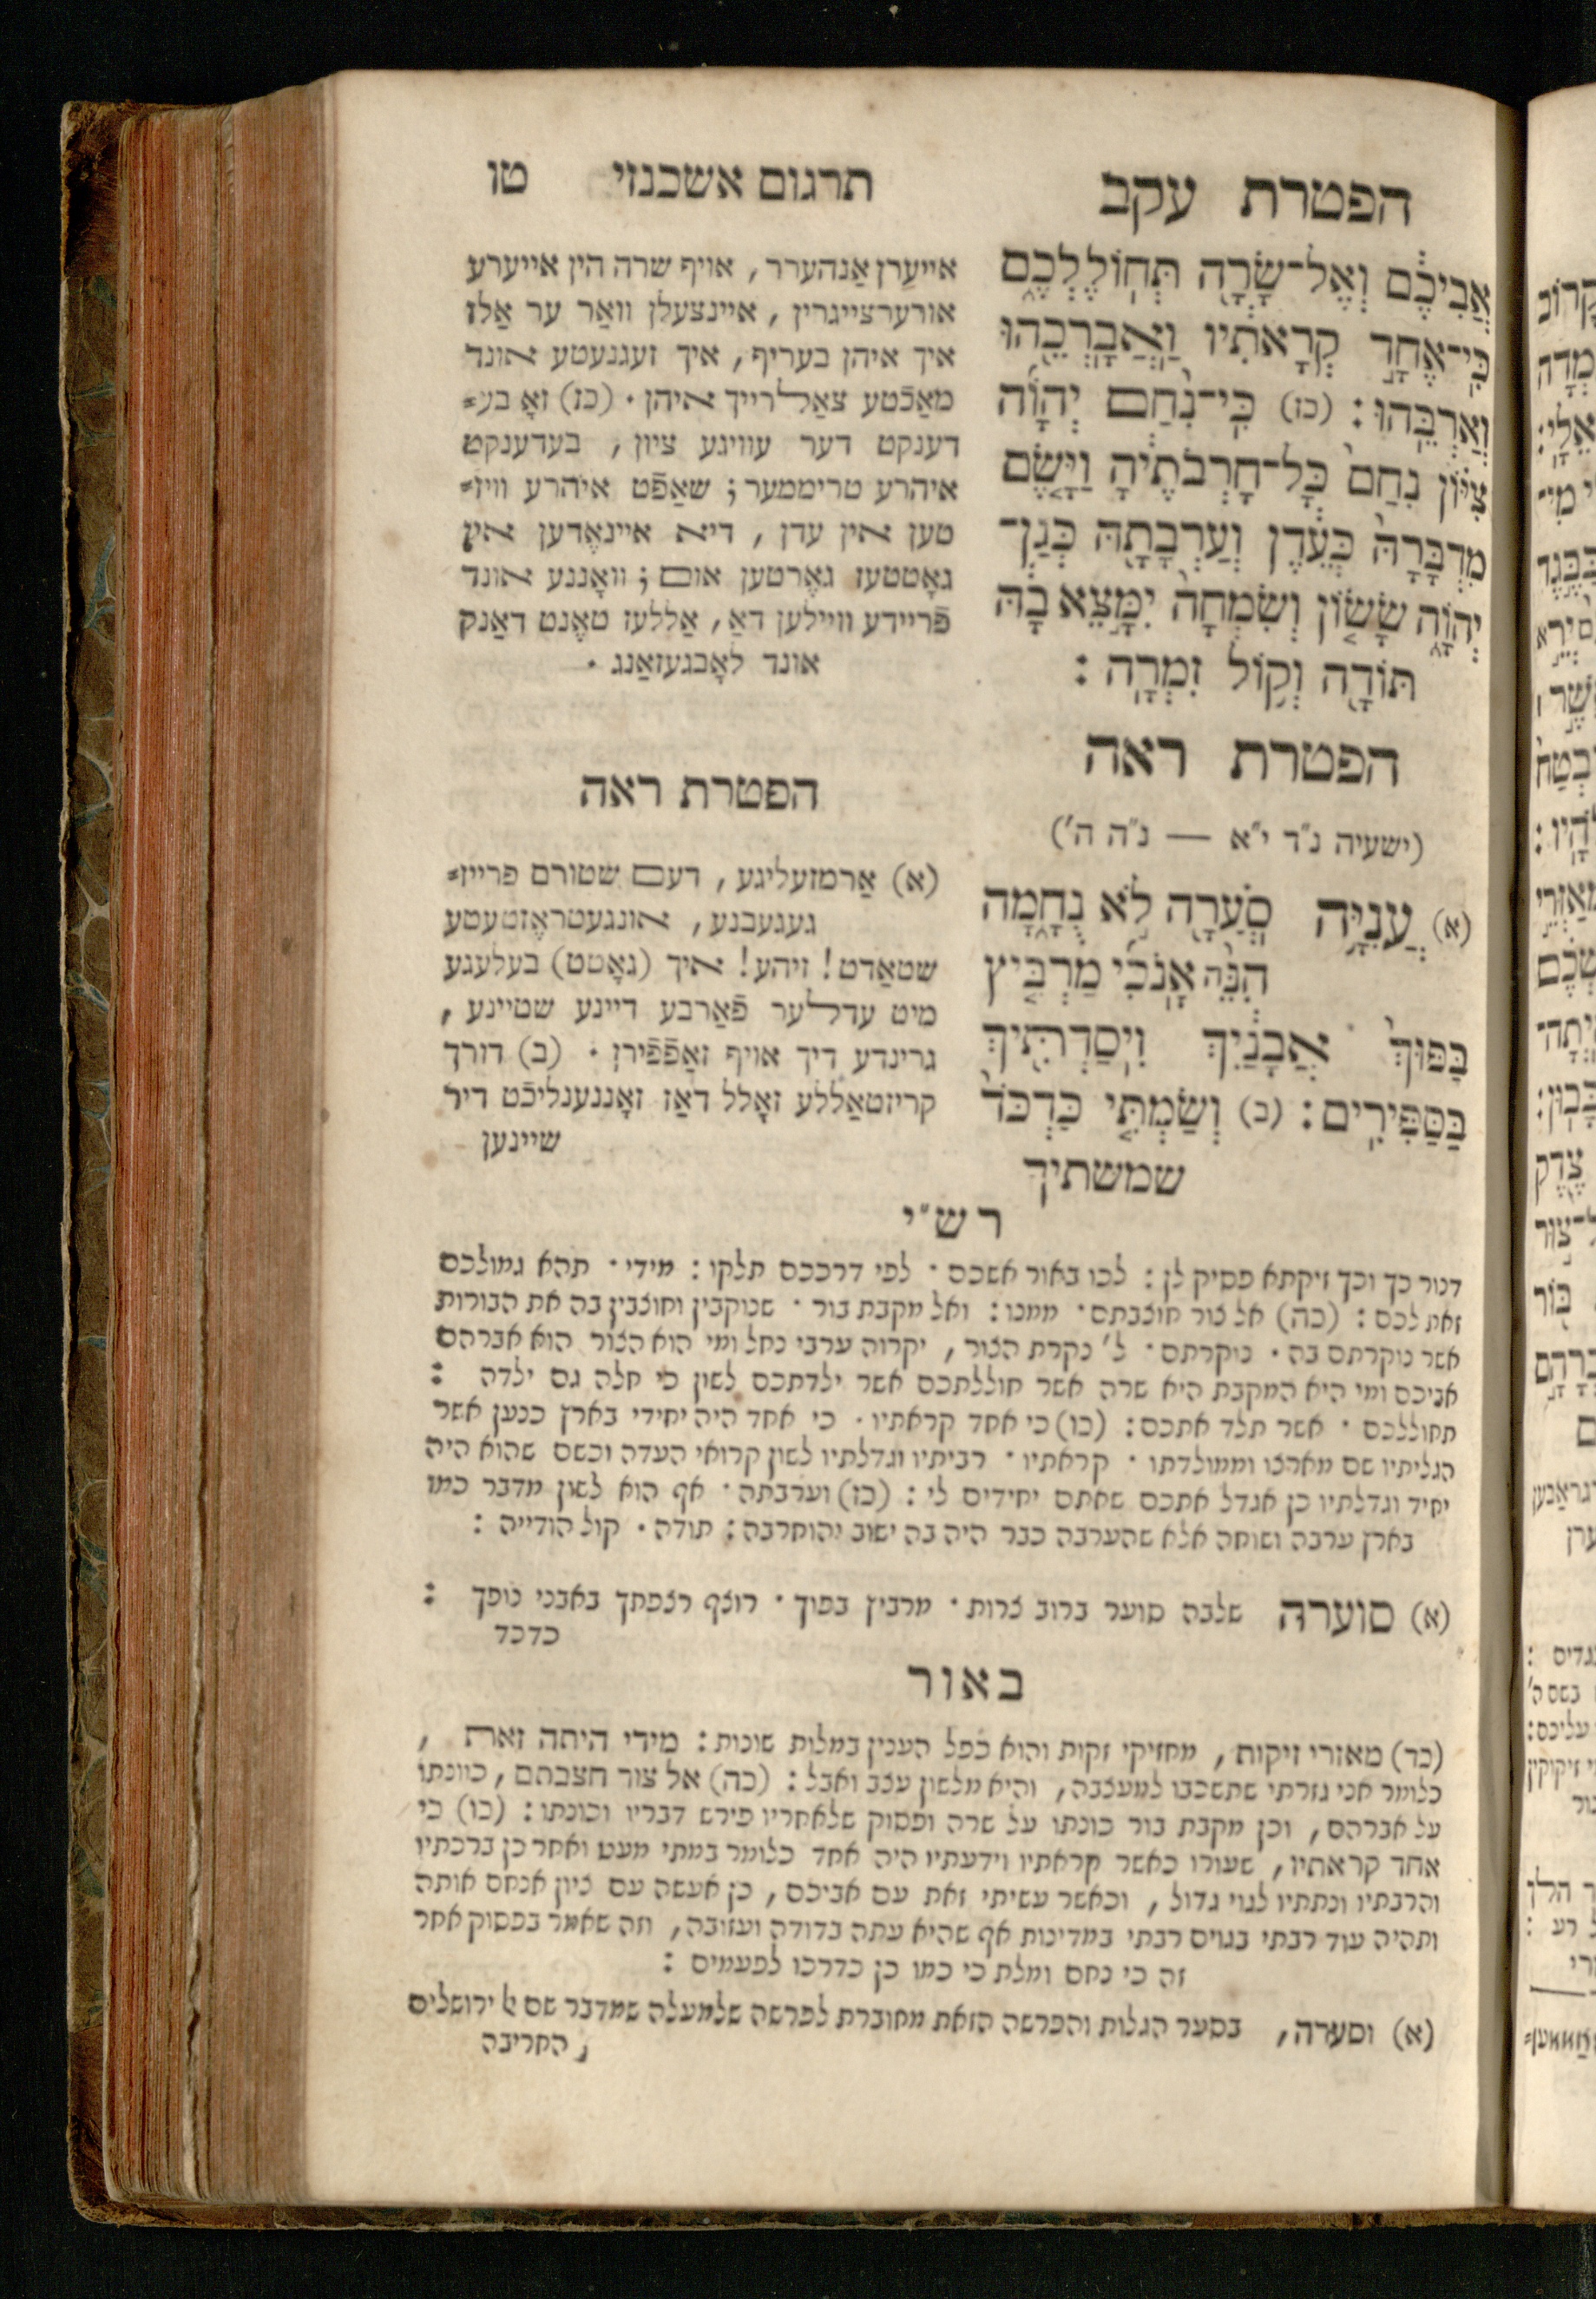 הפטרת עקב
אֲבִיכֶ֔ם וְאֶל־שָׂרָ֖ה תְּחֽוֹלֶלְכֶ֑ם
כִּֽי־אֶחָ֣ד קְרָאתִ֔יו וַאֲבָרְכֵ֖הוּ
וְאַרְבֵּֽהוּ׃ (כז) כִּֽי־נִחַ֨ם יְהוָ֜ה
צִיּ֗וֹן נִחַם֙ כָּל־חָרְבֹתֶ֔יהָ וַיָּ֤שֶׂם
מִדְבָּרָהּ֙ כְּעֵ֔דֶן וְעַרְבָתָ֖הּ כְּגַן־
יְהוָ֑ה שָׂשׂ֤וֹן וְשִׂמְחָה֙ יִמָּ֣צֵא בָ֔הּ
תּוֹדָ֖ה וְק֥וֹל זִמְרָֽה :
הפטרת ראה
(ישעיה נ״ד י״א — נ״ה ה׳)
(א) עֲנִיָּ֥ה סֹעֲרָ֖ה לֹ֣א נֻחָ֑מָה
הִנֵּ֨ה אָנֹכִ֜י מַרְבִּ֤יץ
בַּפּוּךְ֙ אֲבָנַ֔יִךְ וִֽיסַדְתִּ֖יךְ
בַּסַּפִּירִֽים׃ (ב) וְשַׂמְתִּ֤י כַּדְכֹד֙
שמשתיך
תרגום אשכנזי טו
אייערן אַנהערר, אויף שרה הין אייערע
אורערצייגרין, איינצעלן וואַר ער אַלז
איך איהן בעריף, איך זעגנעטע אונד
מאַכֿטע צאַלרייך איהן. (כז) זאָ בע=
דענקט דער עוויגע ציון, בעדענקט
איהרע טריממער; שאַפֿט איהרע וויז=
טען אין עדן, דיא איינאֶדען אין
גאָטטעז גאֶרטען אום; וואָננע אונד
פֿריידע וויילען דאַ, אַללעז טאֶנט דאַנק
אונד לאָבגעזאַנג.
הפטרת ראה
(א) אַרמזעליגע, דעם שטורם פרייז=
געגעבנע, אונגעטראֶזטעטע
שטאַדט! זיהע! איך (גאָטט) בעלעגע
מיט עדלער פֿאַרבע דיינע שטיינע,
גרינדע דיך אויף זאַפֿפֿירן. (ב) דורך
קריזטאַללע זאָלל דאַז זאָננענליכֿט דיר
שיינען
רש״י
דנור כך וכך זיקתא פסיק לן: לכו באור אשכם. לפי דרככם תלקו: מידי. תהא גמולכם
זאת לכם: (כה) אל צור חוצבתם. ממנו: ואל מקבת בור. שנוקבין וחוצבין בה את הבורות
אשר נוקרתם בה. נוקרתם. ל׳ נקרת הצור, יקרוה ערבי נחל ומי הוא הצור הוא אברהם
אביכם ומי היא המקבת היא שרה אשר חוללתכם אשר ילדתכם לשון כי חלה גם ילדה:
תחוללכם. אשר תלד אתכם: (כו) כי אחד קראתיו. כי אחד היה יחידי בארץ כנען אשר
הגליתיו שם מארצו וממולדתו. קראתיו. רביתיו וגדלתיו לשון קרואי העדה וכשם שהוא היה
יחיד וגדלתיו כן אגדל אתכם שאתם יחידים לי: (כז) וערבתה. אף הוא לשון מדבר כמו
בארץ ערבה ושוחה אלא שהערבה כבר היה בה ישוב והוחרבה: תודה. קול הודייה:
(א) סוערה שלבה סוער ברוב צרות. מרביץ בפוך. רוצף רצפתך באבני נופך:
כדכד
באור
(כד) מאזרי זיקות, מחזיקי זקות והוא כפל הענין במלות שונות: מידי היתה זאת,
כלומר אני גזרתי שתשכבו למעצבה, והיא מלשון עצב ואבל: (כה) אל צור חצבתם, כוונתו
על אברהם, וכן מקבת בור כונתו על שרה ופסוק שלאחריו פירש דבריו וכונתו: (כו) כי
אחד קראתיו, שעורו כאשר קראתיו וידעתיו היה אחד כלומר במתי מעט ואחר כן ברכתיו
והרבתיו ונתתיו לגוי גדול, וכאשר עשיתי זאת עם אביכם, כן אעשה עם ציון אנחם אותה
ותהיה עוד רבתי בגוים רבתי במדינות אף שהיא עתה בדודה ועזובה, וזה שאמר בפסוק אחר
זה כי נחם ומלת כי כמו כן כדרכו לפעמים:
(א) וסערה, בסער הגלות והפרשה הזאת מחוברת לפרשה שלמעלה שמדבר שם ירושלים
החריבה